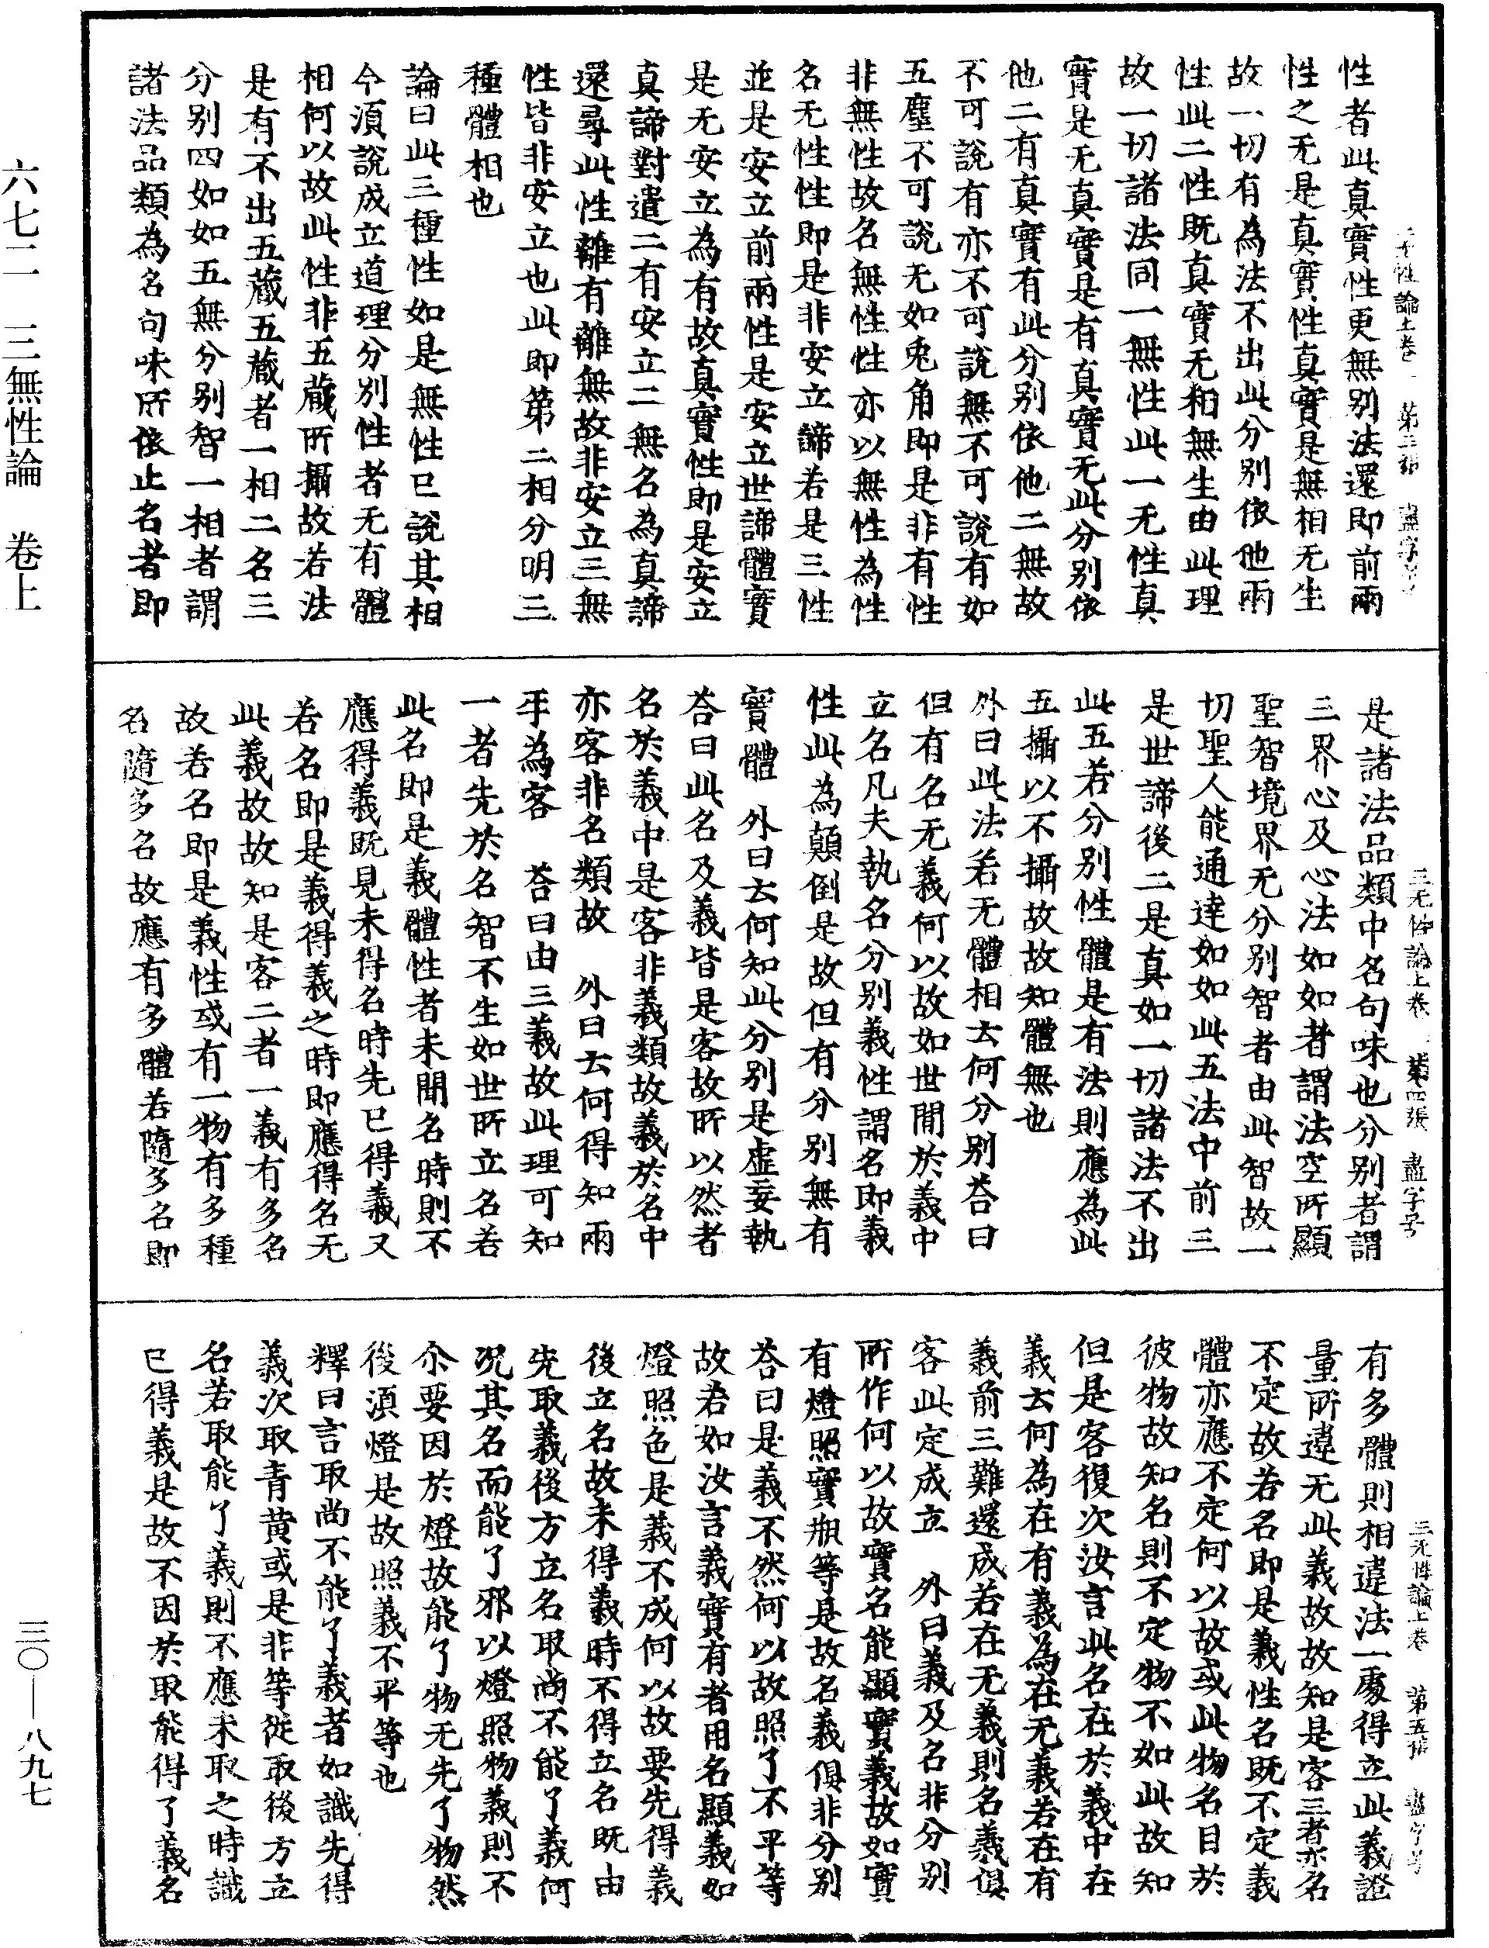 性者此真實性更無別法還即前兩
性之无是真實性真實是無相无生
故一切有為法不出此分別依他兩
性此二性既真實无相無生由此理
故一切諸法同一無性此一无性真
實是无真實是有真實无此分別依
他二有真實有此分別依他二無故
不可說有亦不可說無不可說有如
五塵不可說无如兎角即是非有性
非無性故名無性性亦以無性為性
名无性性即是非安立諦若是三性
並是安立前兩性是安立世諦體實
是无安立為有故真實性即是安立
真諦對遣二有安立二無名為真諦
還尋此性離有離無故非安立三無
性皆非安立也此即第二相分明三
種體相也
論曰此三種性如是無性已說其相
今須說成立道理分別性者无有體
相何以故此性非五蔵所攝故若法
是有不出五蔵五蔵者一相二名三
分別四如如五無分別智一相者謂
諸法品類為名句味所依止名者即
三无性論上卷 第三張 盡字号
是諸法品類中名句味也分別者謂
三界心及心法如如者謂法空所顯
聖智境界无分別智者由此智故一
切聖人能通達如如此五法中前三
是世諦後二是真如一切諸法不出
此五若分別性體是有法則應為此
五攝以不攝故故知體無也
外曰此法若无體相云何分別荅曰
但有名无義何以故如世間於義中
立名凡夫執名分別義性謂名即義
性此為顛倒是故但有分別無有
實體 外曰云何知此分別是虛妄執
荅曰此名及義皆是客故所以然者
名於義中是客非義類故義於名中
亦客非名類故 外曰云何得知兩
乎為客 荅曰由三義故此理可知
一者先於名智不生如世所立名若
此名即是義體性者未聞名時則不
應得義既見未得名時先已得義又
若名即是義得義之時即應得名无
此義故故知是客二者一義有多名
故若名即是義性或有一物有多種
名隨多名故應有多體若隨多名即
三无性論上卷 第四張 盡字号
有多體則相違法一處得立此義證
量所違无此義故故知是客三者亦名
不定故若名即是義性名既不定義
體亦應不定何以故或此物名目於
彼物故知名則不定物不如此故知
但是客復次汝言此名在於義中在
義云何為在有義為在无義若在有
義前三難還成若在无義則名義俱
客此定成立 外曰義及名非分別
所作何以故實名能顯實義故如實
有燈照實瓶等是故名義俱非分別
荅曰是義不然何以故照了不平等
故若如汝言義實有者用名顯義如
燈照色是義不成何以故要先得義
後立名故未得義時不得立名既由
先取義後方立名取尚不能了義何
况其名而能了邪以燈照物義則不
尒要因於燈故能了物无先了物然
後須燈是故照義不平等也
釋曰言取尚不能了義者如識先得
義次取青黄或是非等從取後方立
名若取能了義則不應未取之時識
已得義是故不因於取能得了義名
三无性論上卷 第五張 盡字号
六七二 三無性論 卷上
三〇—八九七